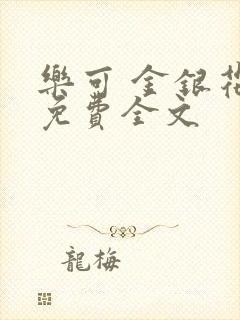 樂可 金銀花
免費全文
龍梅